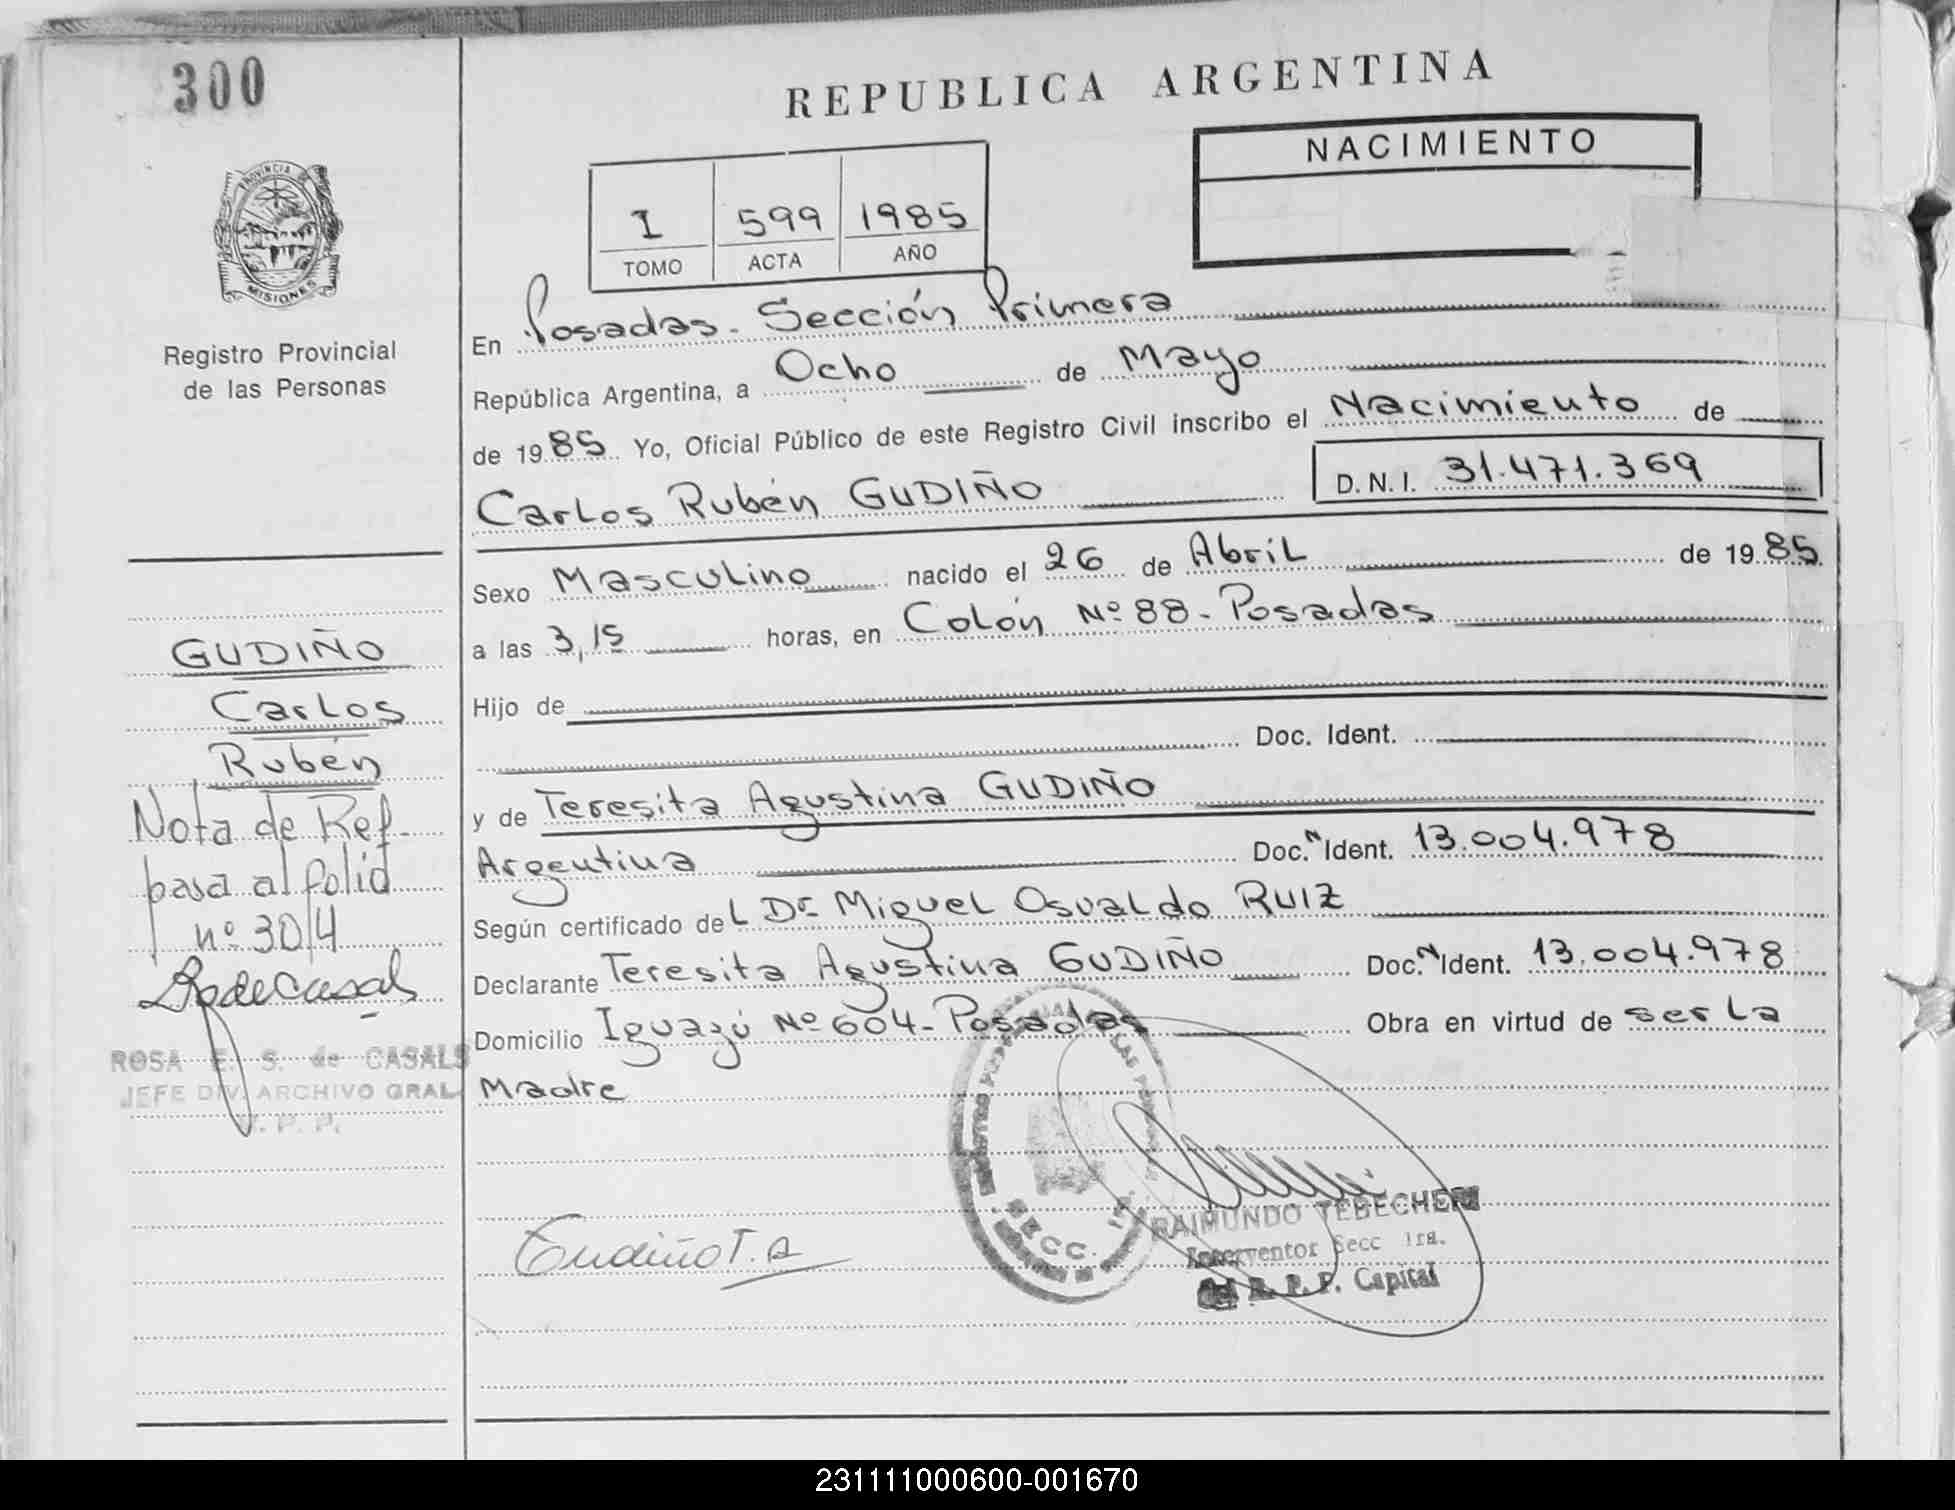 300
REPUBLICA ARGENTINA
NACIMIENTO
I 599 1985
TOMO ACTA AÑO
PROVINCIA DE
MISIONES
Registro Provincial
de las Personas
En Posadas - Sección Primera
República Argentina, a Ocho de Mayo
de 1985 Yo, Oficial Público de este Registro Civil inscribo el Nacimiento de
Carlos Rubén GUDIÑO D.N.I. 31.471.369
Sexo Masculino nacido el 26 de Abril de 1985
a las 3,15 horas, en Colón Nº 88 - Posadas
Hijo de
Doc. Ident.
y de Teresita Agustina GUDIÑO
Argentina Doc. N Ident. 13.004.978
Según certificado del Dr Miguel Osvaldo RUIZ
Declarante Teresita Agustina GUDIÑO Doc. N Ident. 13.004.978
Domicilio Iguazú Nº 604 - Posadas Obra en virtud de ser la
Madre
GUDIÑO
Carlos
Rubén
Nota de Ref.
pasa al folio
nº 3014
ROSA E. S. de CASALS
JEFE DIV. ARCHIVO GRAL
. P. P.
Gudiño T. A
SECC. 1ra.
RAIMUNDO TEBECHERI
Interventor Secc 1ra.
R. P. P. Capital
231111000600-001670